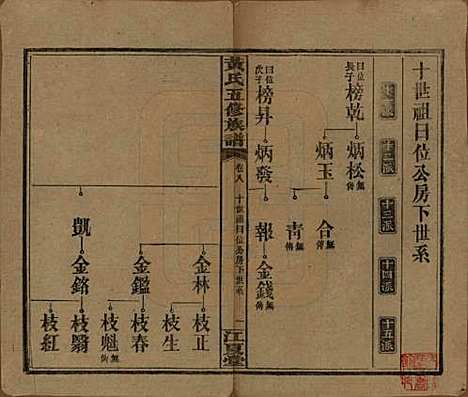 十世祖曰位公房下世系
十二派
十三派
十四派
十五派
曰位長子 榜乾
炳松 無傳
炳玉
合 無傳
青 無傳
曰位次子 榜昇
炳發
報
金錢 無傳
黃氏五修族譜
卷八 十世祖曰位公房下世系 一
江夏堂
金林
枝正
枝生
金鑑
枝春
枝魁 無傳
凱
金銘
枝翳 無傳
枝紅